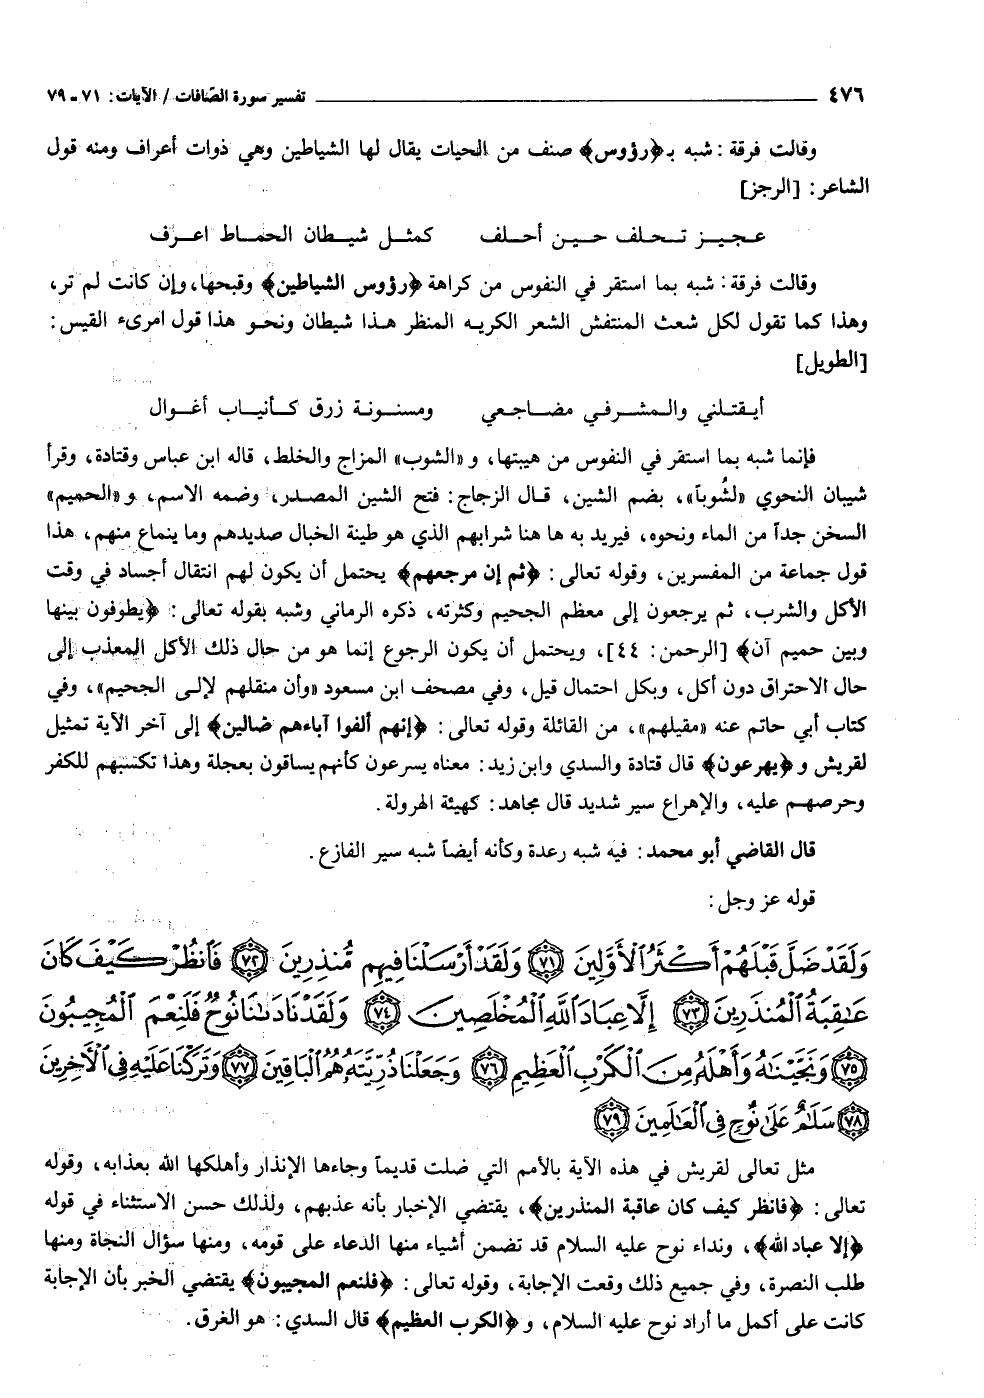 ٤٧٦ تفسير سورة الصّافات / الآيات: ٧١ - ٧٩
وقالت فرقة: شبه بـ﴿رؤوس﴾ صنف من الحيات يقال لها الشياطين وهي ذوات أعراف ومنه قول
الشاعر: [الرجز]
عجيز تحلف حين أحلف كمثل شيطان الحماط اعرف
وقالت فرقة: شبه بما استقر في النفوس من كراهة ﴿رؤوس الشياطين﴾ وقبحها، وإن كانت لم تر،
وهذا كما تقول لكل شعث المنتفش الشعر الكريه المنظر هذا شيطان ونحو هذا قول امرىء القيس:
[الطويل]
أيقتلني والمشرفي مضاجعي ومسنونة زرق كأنياب أغوال
فإنما شبه بما استقر في النفوس من هيبتها، و «الشوب» المزاج والخلط، قاله ابن عباس وقتادة، وقرأ
شيبان النحوي «لشُوباً»، بضم الشين، قال الزجاج: فتح الشين المصدر، وضمه الاسم، و «الحميم»
السخن جداً من الماء ونحوه، فيريد به ها هنا شرابهم الذي هو طينة الخبال صديدهم وما ينماع منهم، هذا
قول جماعة من المفسرين، وقوله تعالى: ﴿ثم إن مرجعهم﴾ يحتمل أن يكون لهم انتقال أجساد في وقت
الأكل والشرب، ثم يرجعون إلى معظم الجحيم وكثرته، ذكره الرماني وشبه بقوله تعالى: ﴿يطوفون بينها
وبين حميم آن﴾ [الرحمن: ٤٤]، ويحتمل أن يكون الرجوع إنما هو من حال ذلك الأكل المعذب إلى
حال الاحتراق دون أكل، وبكل احتمال قيل، وفي مصحف ابن مسعود «وأن منقلهم لإلى الجحيم»، وفي
كتاب أبي حاتم عنه «مقيلهم»، من القائلة وقوله تعالى: ﴿إنهم ألفوا آباءهم ضالين﴾ إلى آخر الآية تمثيل
لقريش و ﴿يهرعون﴾ قال قتادة والسدي وابن زيد: معناه يسرعون كأنهم يساقون بعجلة وهذا تكسبهم للكفر
وحرصهم عليه، والإهراع سير شديد قال مجاهد: كهيئة الهرولة.
قال القاضي أبو محمد: فيه شبه رعدة وكأنه أيضاً شبه سير الفازع.
قوله عز وجل:
وَلَقَدْ ضَلَّ قَبْلَهُمْ أَكْثَرُ ٱلْأَوَّلِينَ ﴿٧١﴾ وَلَقَدْ أَرْسَلْنَا فِيهِم مُّنذِرِينَ ﴿٧٢﴾ فَٱنظُرْ كَيْفَ كَانَ
عَٰقِبَةُ ٱلْمُنذَرِينَ ﴿٧٣﴾ إِلَّا عِبَادَ ٱللَّهِ ٱلْمُخْلَصِينَ ﴿٧٤﴾ وَلَقَدْ نَادَىٰنَا نُوحٌ فَلَنِعْمَ ٱلْمُجِيبُونَ
﴿٧٥﴾ وَنَجَّيْنَٰهُ وَأَهْلَهُۥ مِنَ ٱلْكَرْبِ ٱلْعَظِيمِ ﴿٧٦﴾ وَجَعَلْنَا ذُرِّيَّتَهُۥ هُمُ ٱلْبَاقِينَ ﴿٧٧﴾ وَتَرَكْنَا عَلَيْهِ فِى ٱلْآخِرِينَ
﴿٧٨﴾ سَلَٰمٌ عَلَىٰ نُوحٍ فِى ٱلْعَٰلَمِينَ ﴿٧٩﴾
مثل تعالى لقريش في هذه الآية بالأمم التي ضلت قديماً وجاءها الإنذار وأهلكها الله بعذابه، وقوله
تعالى: ﴿فانظر كيف كان عاقبة المنذرين﴾، يقتضي الإخبار بأنه عذبهم، ولذلك حسن الاستثناء في قوله
﴿إلا عباد الله﴾، ونداء نوح عليه السلام قد تضمن أشياء منها الدعاء على قومه، ومنها سؤال النجاة ومنها
طلب النصرة، وفي جميع ذلك وقعت الإجابة، وقوله تعالى: ﴿فلنعم المجيبون﴾ يقتضي الخبر بأن الإجابة
كانت على أكمل ما أراد نوح عليه السلام، و ﴿الكرب العظيم﴾ قال السدي: هو الغرق.